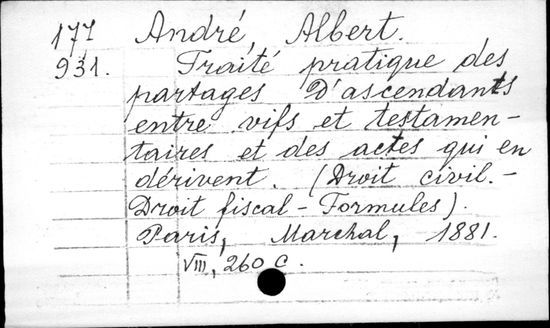 177 André, Albert.
931. Traité pratique des
partages D'ascendants
entre vifs et testamen-
taires et des actes qui en
dérivent. (Droit civil.-
Droit fiscal - Formules).
Paris, Marchal, 1881.
VIII, 260 c.